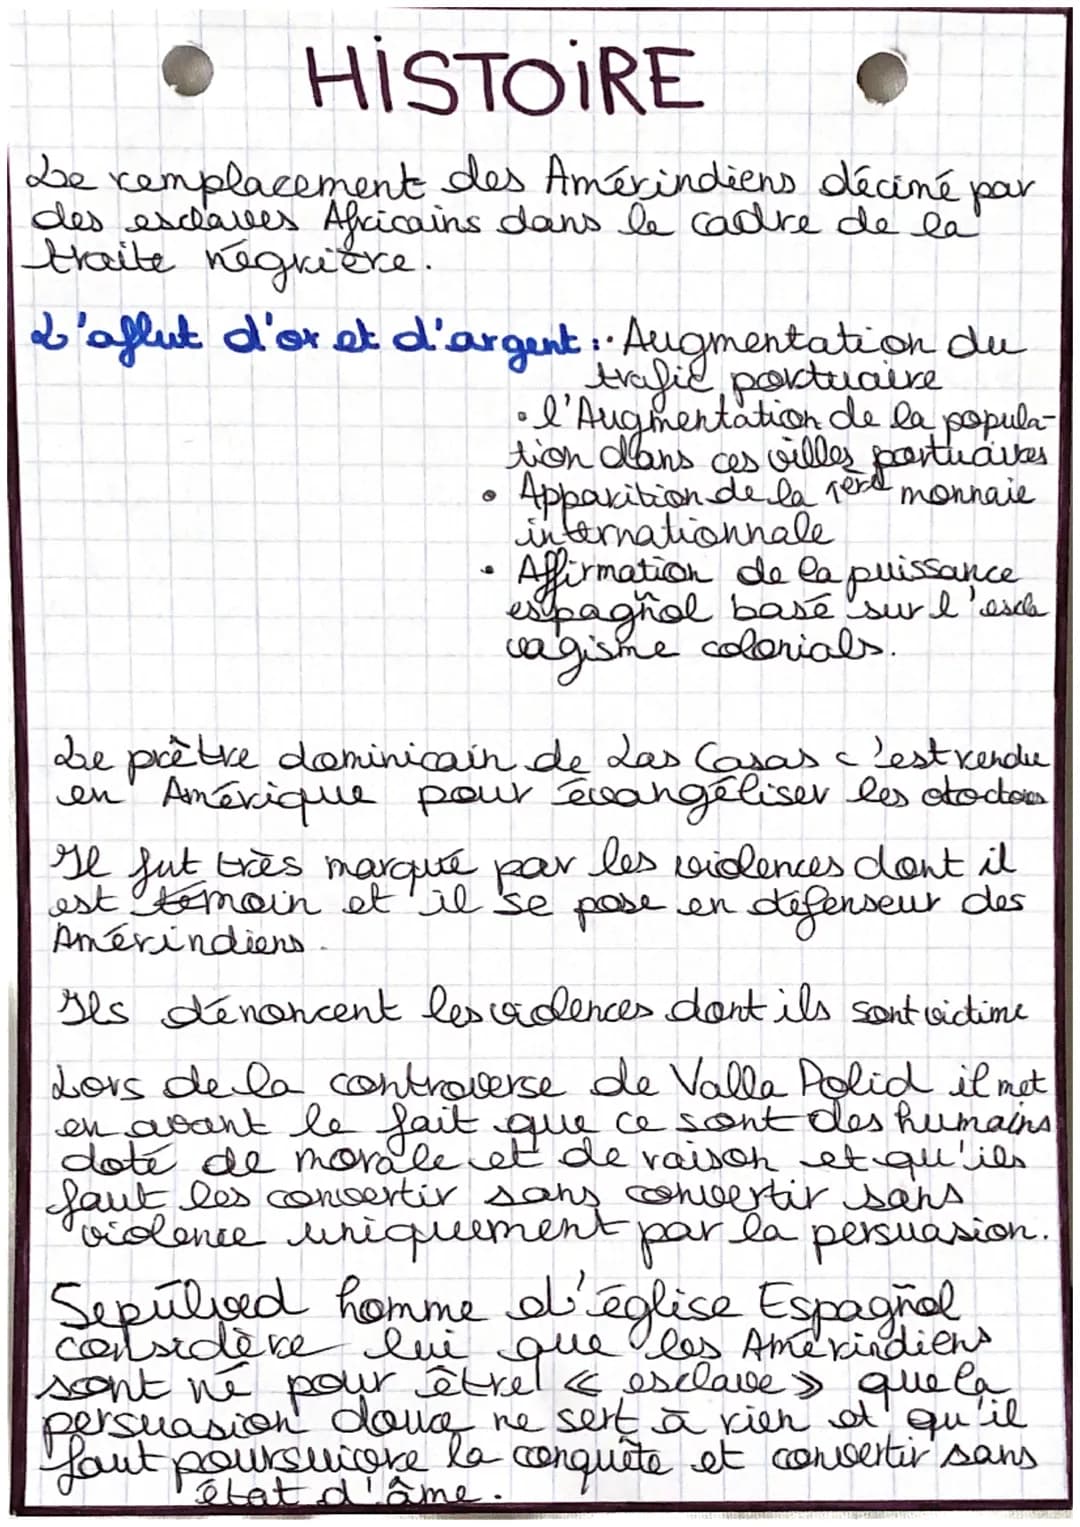 HISTOIRE
Le remplacement des Amérindiens déciné par
des esclaves Africains dans le cadre de la
traite négrière.
L'aflut d'or et d'argent : · Augmentation du
trafic portuaire
• l'Augmentation de la popula-
tion dans ces villes portuaires
• Apparition de la 1ère monnaie
internationnale
• Affirmation de la puissance
espagñol basé sur l'escla
vagisme colonials.
Le prêtre dominicain de Las Casas c'est rendu
en Amérique pour évangéliser les
Il fut très marqué par les violences dont il
est témoin et il se pose en défenseur des
Amérindiens.
Ils dénoncent les violences dont ils sont victime
Lors de la controverse de Valla Polid il met
en avant le fait que ce sont des humains
doté de morale et de raison et qu'ils
faut les convertir sans convertir sans
violence uniquement par la persuasion.
Sepúlved homme d'église Espagñol
considère lui que les Amérindiens
sont né pour être « esclave » que la
persuasion douce ne sert à rien et qu'il
faut poursuivre la conquête et convertir sans
état d'âme.